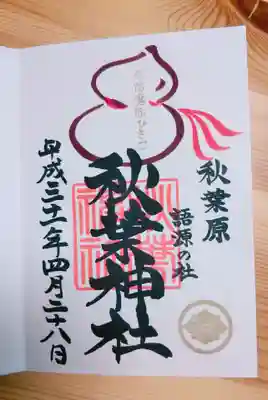 秋葉原
語源の社
秋葉神社
平成三十一年四月二十八日